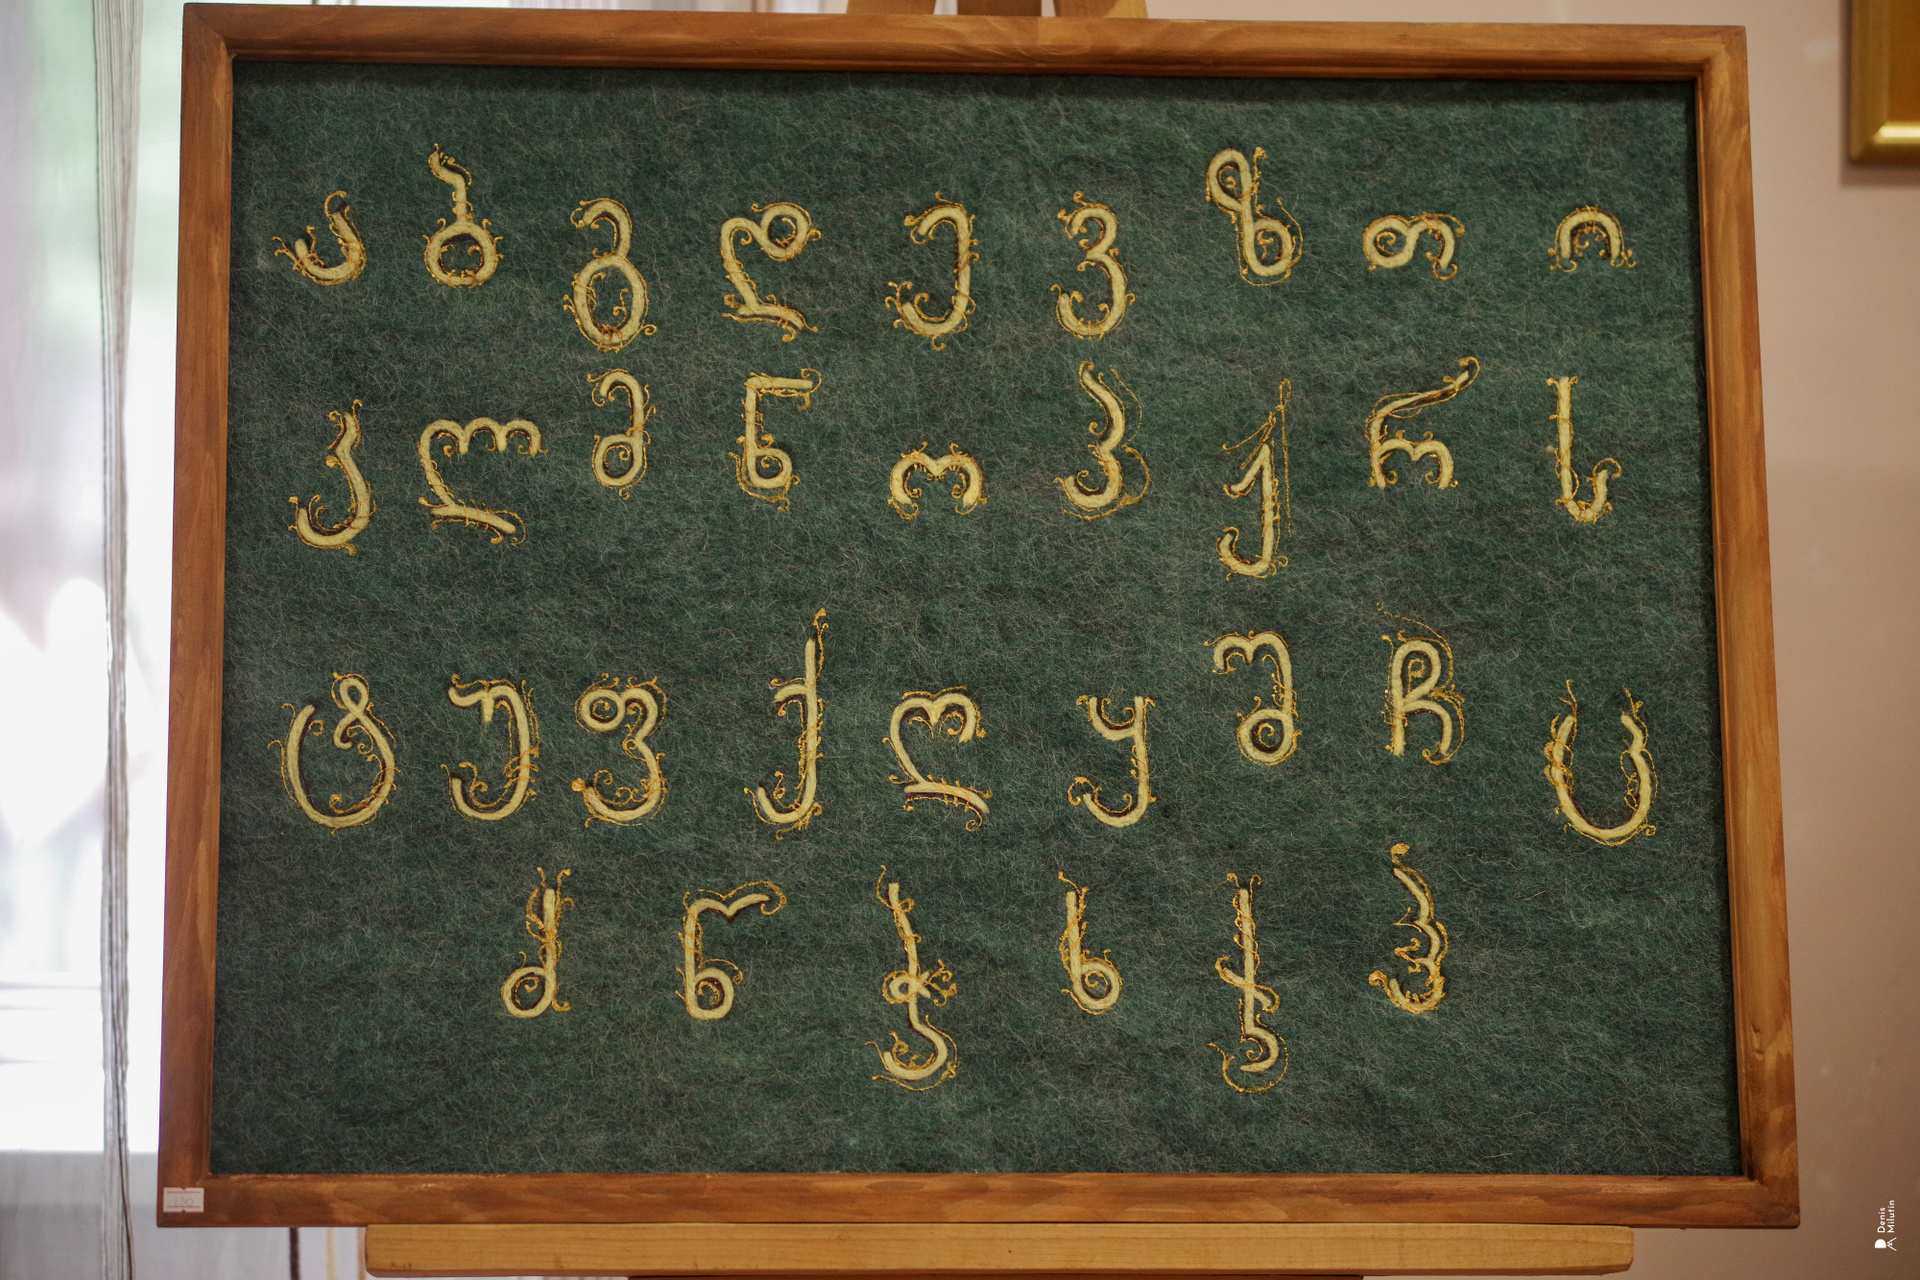 ა ბ გ დ ე ვ ზ თ ი
კ ლ მ ნ ო პ ჟ რ ს
ტ უ ფ ქ ღ ყ შ ჩ ც
ძ წ ჭ ხ ჯ ჰ
Denis
Milutin